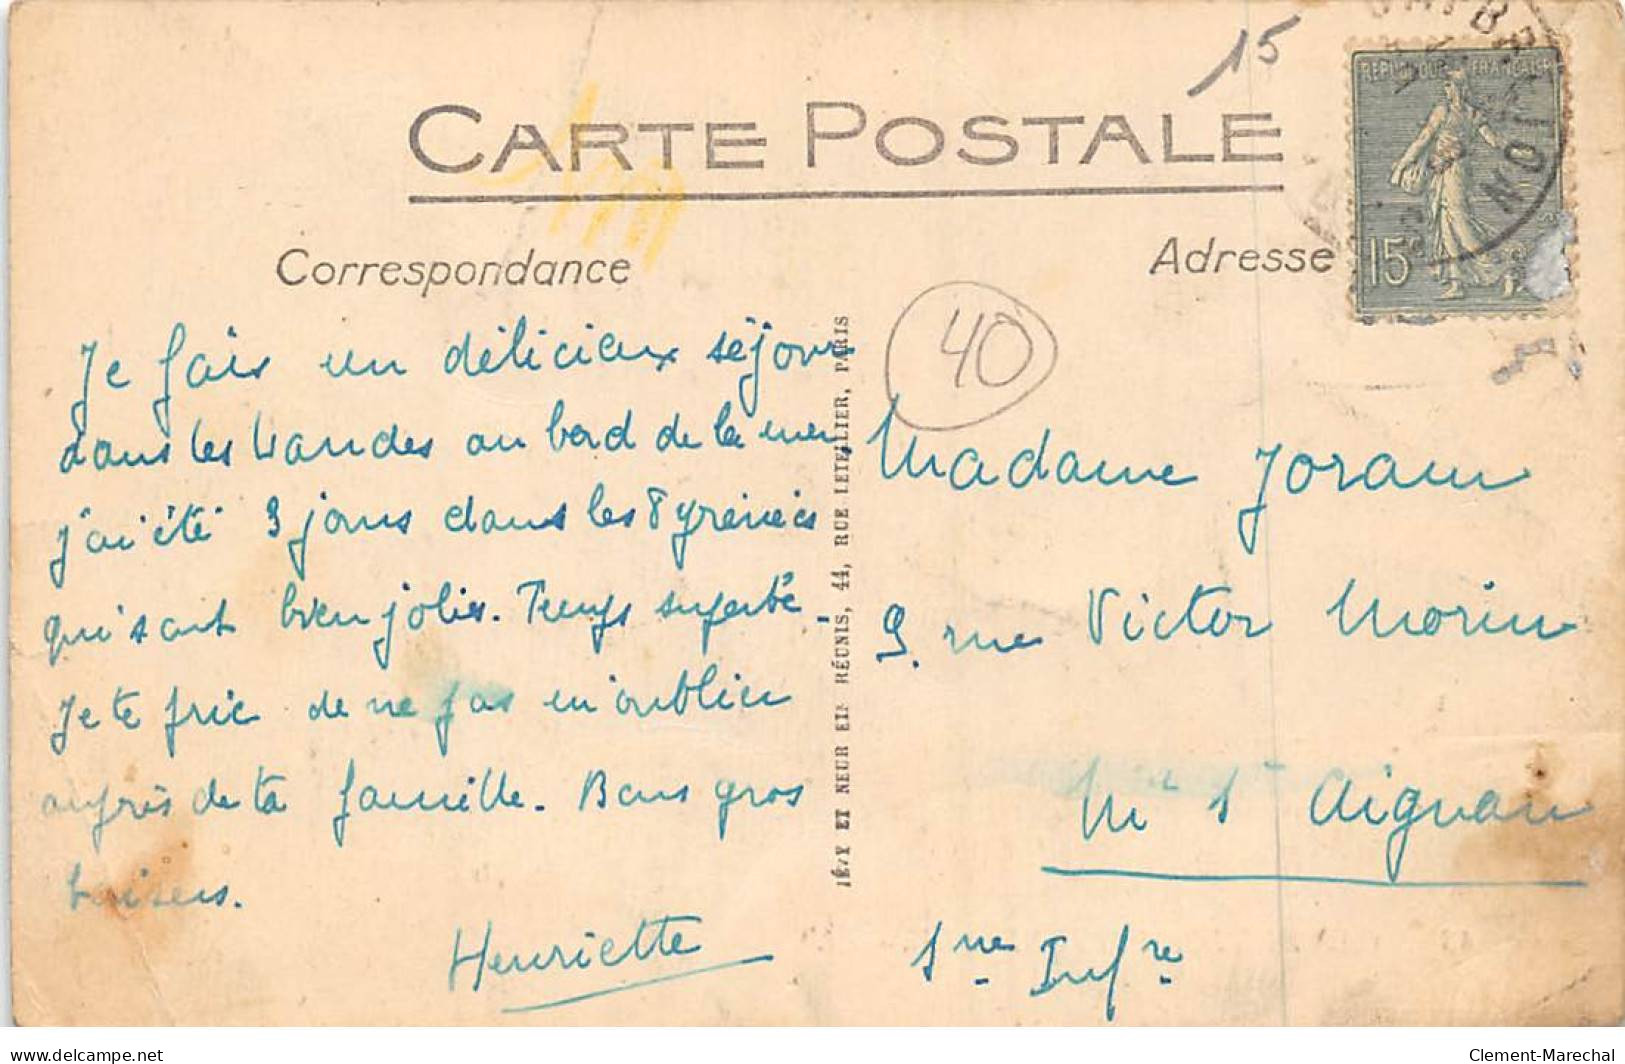 15
CARTE POSTALE
Correspondance
Adresse
REPUBLIQUE FRANÇAISE
15c
40
Je fais un délicieux séjour
dans les Landes au bord de la mer
j'ai été 3 jours dans les Pyrénées
qui sont bien jolies. Temps superbe.
Je te prie de ne pas m'oublier
auprès de ta famille. Bons gros
baisers.
Henriette
LÉVY ET NEURDEIN RÉUNIS, 44, RUE LETELLIER, PARIS
Madame Joram
9. rue Victor Morin
Mt St Aignan
Sne Infre
delcampe.net
Clement-Marechal